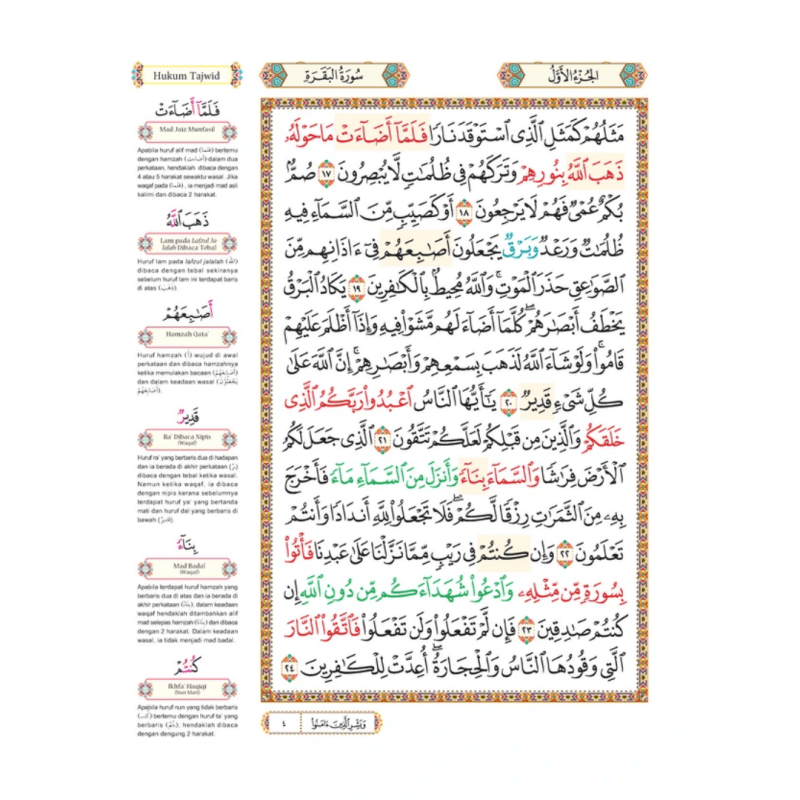 الجزء الأول
سورة البقرة
مَثَلُهُمْ كَمَثَلِ ٱلَّذِى ٱسْتَوْقَدَ نَارًا فَلَمَّآ أَضَآءَتْ مَا حَوْلَهُۥ
ذَهَبَ ٱللَّهُ بِنُورِهِمْ وَتَرَكَهُمْ فِى ظُلُمَٰتٍ لَّا يُبْصِرُونَ ١٧ صُمٌّۢ
بُكْمٌ عُمْىٌ فَهُمْ لَا يَرْجِعُونَ ١٨ أَوْ كَصَيِّبٍ مِّنَ ٱلسَّمَآءِ فِيهِ
ظُلُمَٰتٌ وَرَعْدٌ وَبَرْقٌ يَجْعَلُونَ أَصَٰبِعَهُمْ فِىٓ ءَاذَانِهِم مِّنَ
ٱلصَّوَٰعِقِ حَذَرَ ٱلْمَوْتِ ۚ وَٱللَّهُ مُحِيطٌۢ بِٱلْكَٰفِرِينَ ١٩ يَكَادُ ٱلْبَرْقُ
يَخْطَفُ أَبْصَٰرَهُمْ ۖ كُلَّمَآ أَضَآءَ لَهُم مَّشَوْا۟ فِيهِ وَإِذَآ أَظْلَمَ عَلَيْهِمْ
قَامُوا۟ ۚ وَلَوْ شَآءَ ٱللَّهُ لَذَهَبَ بِسَمْعِهِمْ وَأَبْصَٰرِهِمْ ۚ إِنَّ ٱللَّهَ عَلَىٰ
كُلِّ شَىْءٍ قَدِيرٌ ٢٠ يَٰٓأَيُّهَا ٱلنَّاسُ ٱعْبُدُوا۟ رَبَّكُمُ ٱلَّذِى
خَلَقَكُمْ وَٱلَّذِينَ مِن قَبْلِكُمْ لَعَلَّكُمْ تَتَّقُونَ ٢١ ٱلَّذِى جَعَلَ لَكُمُ
ٱلْأَرْضَ فِرَٰشًا وَٱلسَّمَآءَ بِنَآءً وَأَنزَلَ مِنَ ٱلسَّمَآءِ مَآءً فَأَخْرَجَ
بِهِۦ مِنَ ٱلثَّمَرَٰتِ رِزْقًا لَّكُمْ ۖ فَلَا تَجْعَلُوا۟ لِلَّهِ أَندَادًا وَأَنتُمْ
تَعْلَمُونَ ٢٢ وَإِن كُنتُمْ فِى رَيْبٍ مِّمَّا نَزَّلْنَا عَلَىٰ عَبْدِنَا فَأْتُوا۟
بِسُورَةٍ مِّن مِّثْلِهِۦ وَٱدْعُوا۟ شُهَدَآءَكُم مِّن دُونِ ٱللَّهِ إِن
كُنتُمْ صَٰدِقِينَ ٢٣ فَإِن لَّمْ تَفْعَلُوا۟ وَلَن تَفْعَلُوا۟ فَٱتَّقُوا۟ ٱلنَّارَ
ٱلَّتِى وَقُودُهَا ٱلنَّاسُ وَٱلْحِجَارَةُ ۖ أُعِدَّتْ لِلْكَٰفِرِينَ ٢٤
وَبَشِّرِ ٱلَّذِينَ ءَامَنُوا۟
٤
Hukum Tajwid
فَلَمَّآ أَضَآءَتْ
Mad Jaiz Munfasil
Apabila huruf alif mad (فلما) bertemu
dengan hamzah (أضاءت) dalam dua
perkataan, hendaklah dibaca dengan
4 atau 5 harakat sewaktu wasal. Jika
waqaf pada (فلما), ia menjadi mad asli
kalimi dan dibaca 2 harakat.
ذَهَبَ ٱللَّهُ
Lam pada Lafzul Ja-
lalah Dibaca Tebal
Huruf lam pada lafzul jalalah (الله)
dibaca dengan tebal sekiranya
sebelum huruf lam ini terdapat baris
di atas (ذهب).
أَصَٰبِعَهُمْ
Hamzah Qata'
Huruf hamzah (أ) wujud di awal
perkataan dan dibaca hamzahnya
ketika memulakan bacaan (أصابعهم)
dan dalam keadaan wasal (يجعلون
أصابعهم).
قَدِيرٌ
Ra' Dibaca Nipis
(Waqaf)
Huruf ra' yang berbaris dua di hadapan
dan ia berada di akhir perkataan (ر)
dibaca dengan tebal ketika wasal.
Namun ketika waqaf, ia dibaca
dengan nipis kerana sebelumnya
terdapat huruf ya' yang bertanda
mati dan huruf dal yang berbaris di
bawah (قدير).
بِنَآءً
Mad Badal
(Waqaf)
Apabila terdapat huruf hamzah yang
berbaris dua di atas dan ia berada di
akhir perkataan (بناء), dalam keadaan
waqaf hendaklah ditambahkan alif
mad selepas hamzah (بناءا) dan dibaca
dengan 2 harakat. Dalam keadaan
wasal, ia tidak menjadi mad badal.
كُنتُمْ
Ikhfa' Haqiqi
(Nun Mati)
Apabila huruf nun yang tidak berbaris
bertemu dengan huruf ta' yang
berbaris, hendaklah dibaca
dengan dengung 2 harakat.